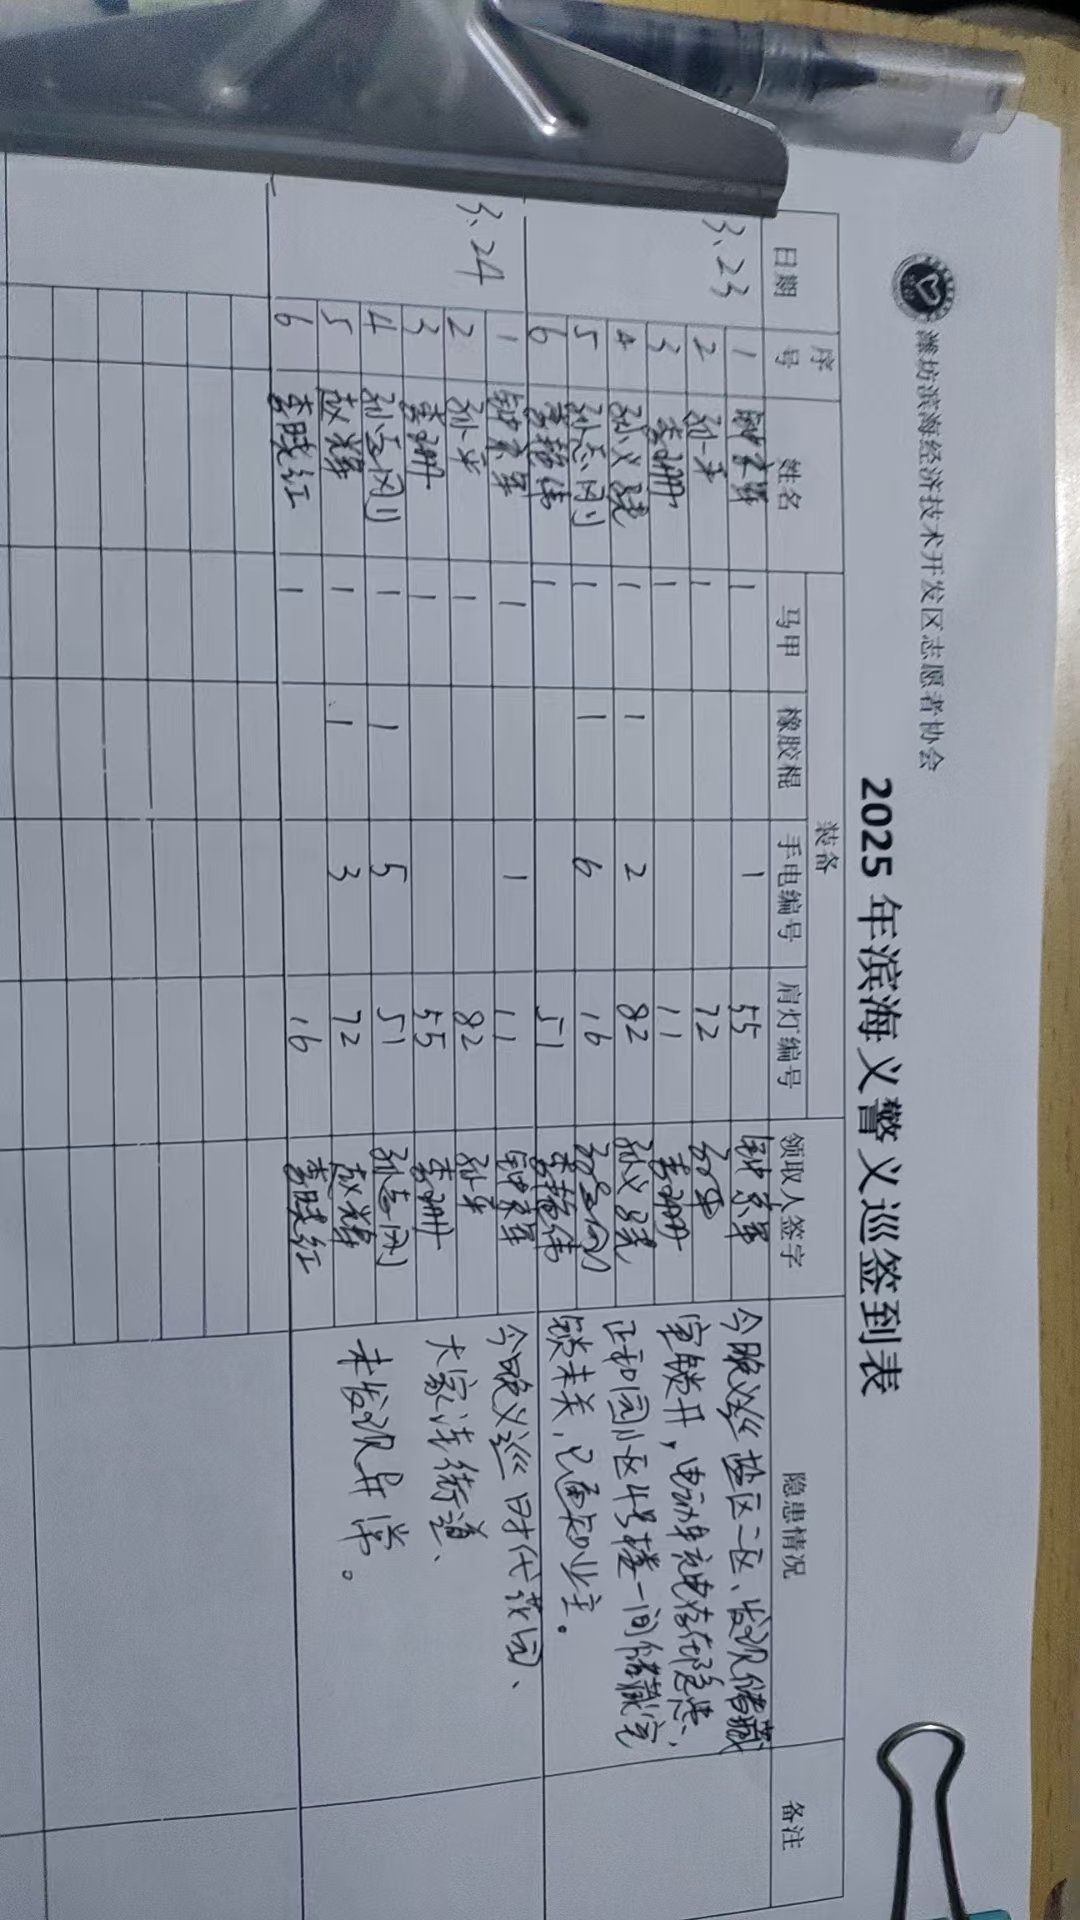 潍坊滨海经济技术开发区志愿者协会
2025年滨海义警义巡签到表
日期 序号 姓名 装备 领取人签字 隐患情况 备注
马甲 橡胶棍 手电编号 肩灯编号
3.23
1 1 1 55
2 孙平 1 72 孙平
3 李珊 1 11 李珊
4 孙义骁 1 1 2 82 孙义骁
5 孙志刚 1 1 6 16 孙志刚
6 李艳伟 1 51 李艳伟
今晚义巡盐区二区、发现储藏
室锁开，电动车充电存在隐患，
正和园小区4号楼一间储藏室
锁未关，已通知业主。
3.24
1 1 1 11
2 孙平 1 82 孙平
3 李珊 1 55 李珊
4 孙志刚 1 1 5 51 孙志刚
5 赵辉 1 1 3 72 赵辉
6 李晓红 1 16 李晓红
今晚义巡时代花园、
大家洼街道、
未发现异常。